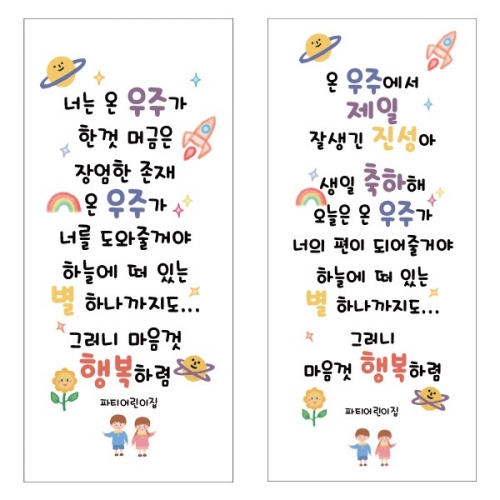 너는 온 우주가
한껏 머금은
장엄한 존재
온 우주가
너를 도와줄게야
하늘에 떠 있는
별 하나까지도...
그러니 마음껏
행복하렴
파티어린이집
온 우주에서
제일
잘생긴 진성아
생일 축하해
오늘은 온 우주가
너의 편이 되어줄거야
하늘에 떠 있는
별 하나까지도...
그러니
마음껏 행복하렴
파티어린이집